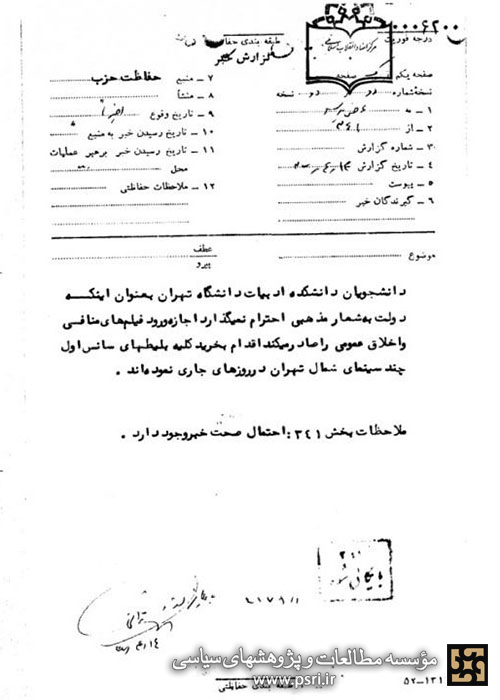 طبقه بندی حفاظتی
درجه فوریت
۰۰۰۶۲۰۰
مرکز اسناد انقلاب اسلامی
گزارش خبر
صفحه یکم
صفحه
نسخه شماره دو از دو نسخه
۱ ـ به
۲ ـ از ۳۴۱
۳ ـ شماره گزارش
۴ ـ تاریخ گزارش
۵ ـ پیوست
۶ ـ گیرندگان خبر
۷ ـ منبع حفاظت حزب
۸ ـ منشأ
۹ ـ تاریخ وقوع اخیرا
۱۰ ـ تاریخ رسیدن خبر به منبع
۱۱ ـ تاریخ رسیدن خبر برهبر عملیات
محل
۱۲ ـ ملاحظات حفاظتی
موضوع
عطف
پیرو
دانشجویان دانشکده ادبیات دانشگاه تهران بعنوان اینکه
دولت به شعار مذهبی احترام نمیگذارد اجازه ورود فیلم‌های منافی
و اخلاق عمومی را صادر میکند اقدام به خرید کلیه بلیطهای سانس اول
چند سینمای شمال تهران در روزهای جاری نموده‌اند .
ملاحظات بخش ۳۴۱ : احتمال صحت خبر وجود دارد .
بایگانی شود
طبقه بندی حفاظتی
۵۲-۱۳۱
مؤسسه مطالعات و پژوهشهای سیاسی
www.psri.ir